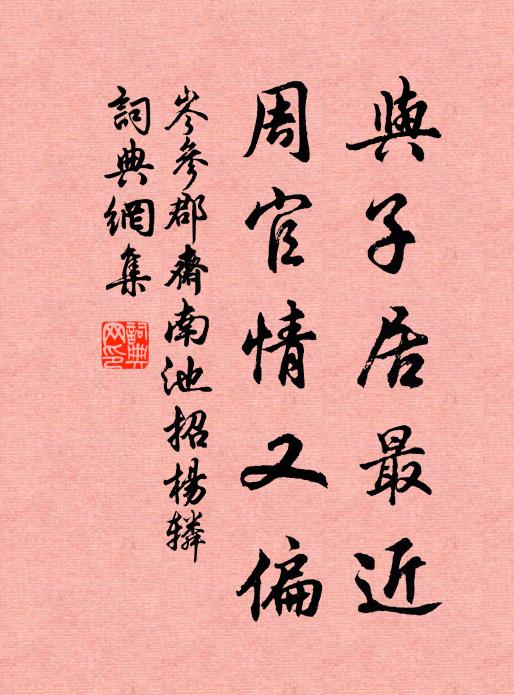 與子居最近
周官情又偏
岑參郡齋南池招楊轔
詞典網集
詞典網印